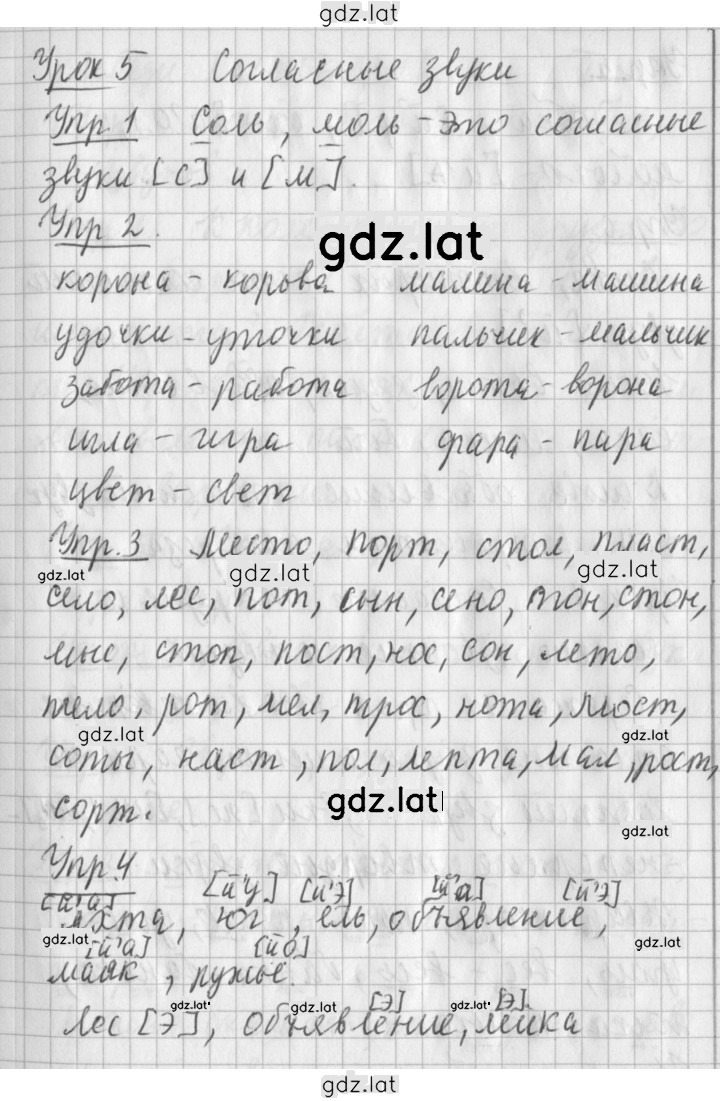 gdz.lat
Урок 5 Согласные звуки
Упр 1 Соль, моль - это согласные
звуки [с] и [м].
Упр 2.
gdz.lat
корона - корова малина - машина
удочки - уточки пальчик - мальчик
забота - работа ворота - ворона
игла - игра фара - пара
цвет - свет
Упр. 3 Место, порт, стол, пласт,
gdz.lat gdz.lat gdz.lat
село, лес, пот, сын, сено, тон, стон,
мыс, стоп, пост, нос, сон, лето,
тело, рот, мел, трос, нота, мост,
gdz.lat gdz.lat
соты, наст, пол, лепта, мал, рост,
gdz.lat
сорт.
gdz.lat
Упр. 4
[й'а] [й'у] [й'э] [й'а] [й'э]
яхта, юг, ель, объявление,
gdz.lat [й'а] [йо] gdz.lat
маяк, ружьё.
gdz.lat [э] gdz.lat [э]
лес [э], объявление, лейка
gdz.lat